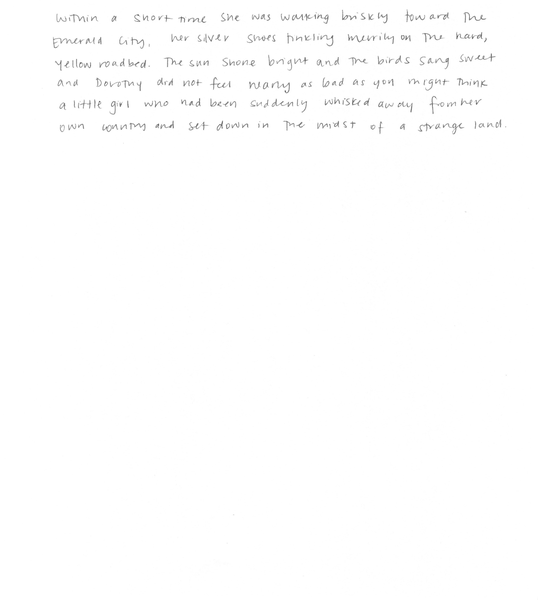 Within a short time she was walking briskly toward The
Emerald City, her silver shoes tinkling merrily on The hard,
yellow roadbed. The sun shone bright and The birds sang sweet
and Dorothy did not feel nearly as bad as you might Think
a little girl who had been suddenly whisked away from her
own country and set down in The midst of a strange land.